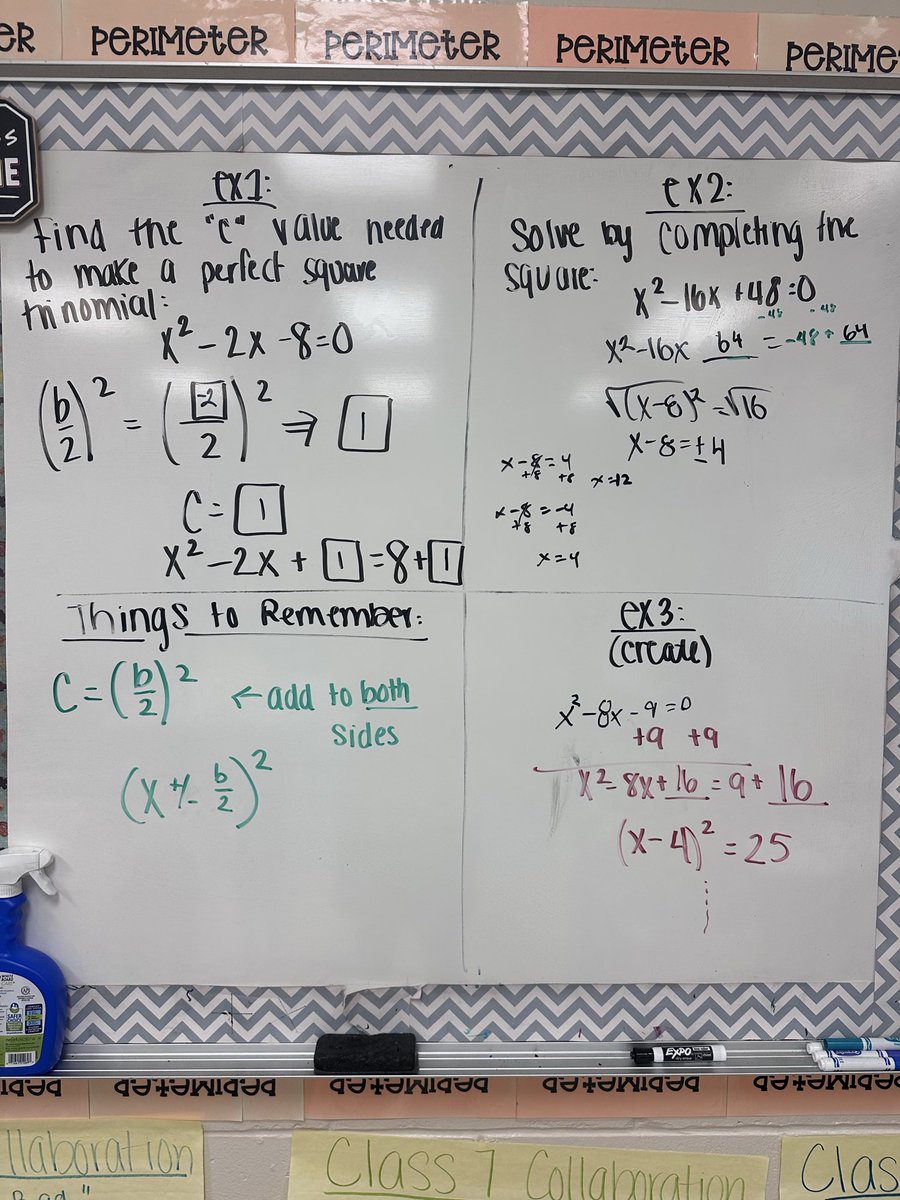 ER PERIMETER PERIMETER PERIMETER PERIME
ex1:
Find the "c" value needed
to make a perfect square
trinomial:
x² - 2x - 8 = 0
(b/2)² = (-2/2)² ⇒ 1
C = 1
x² - 2x + 1 = 8 + 1
ex2:
Solve by completing the
square:
x² - 16x + 48 = 0
-48 -48
x² - 16x 64 = -48 + 64
√(x-8)² = √16
x - 8 = ± 4
x - 8 = 4
+8 +8 x = 12
x - 8 = -4
+8 +8
x = 4
Things to Remember:
C = (b/2)² ← add to both
sides
(x +/- b/2)²
ex3:
(create)
x² - 8x - 9 = 0
+9 +9
x² - 8x + 16 = 9 + 16
(x - 4)² = 25
EXPO
PERIMETER PERIMETER PERIMETER PERIMETER PERIMETER
llaboration
Class 7 Collaboration
Clas